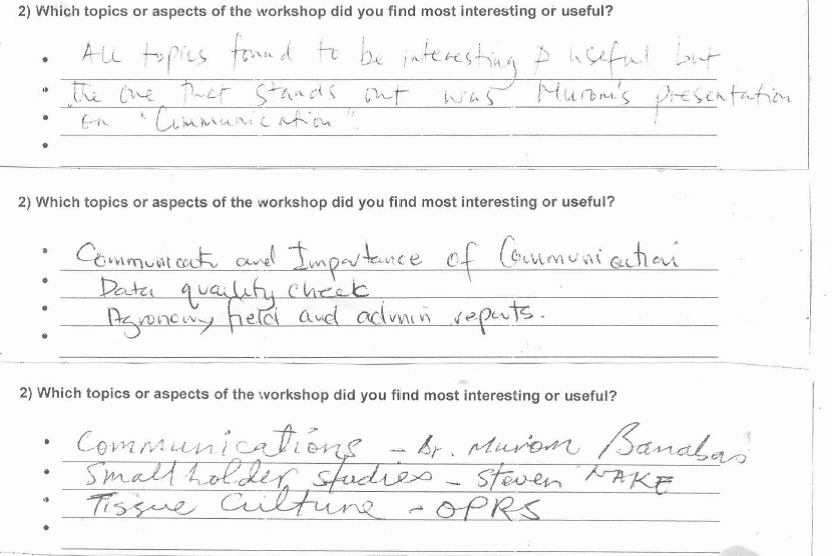 2) Which topics or aspects of the workshop did you find most interesting or useful?
• All topics found to be interesting & useful but
• the one that stands out was Murom's presentation
• on "Communication".
•
2) Which topics or aspects of the workshop did you find most interesting or useful?
• Communicate and Importance of Communication
• Data quaility check
• Agronomy field and admin reports.
•
2) Which topics or aspects of the workshop did you find most interesting or useful?
• Communications - Dr. Murom Banabas
• Smallholder studies - Steven NAKE
• Tissue Culture - OPRS
•